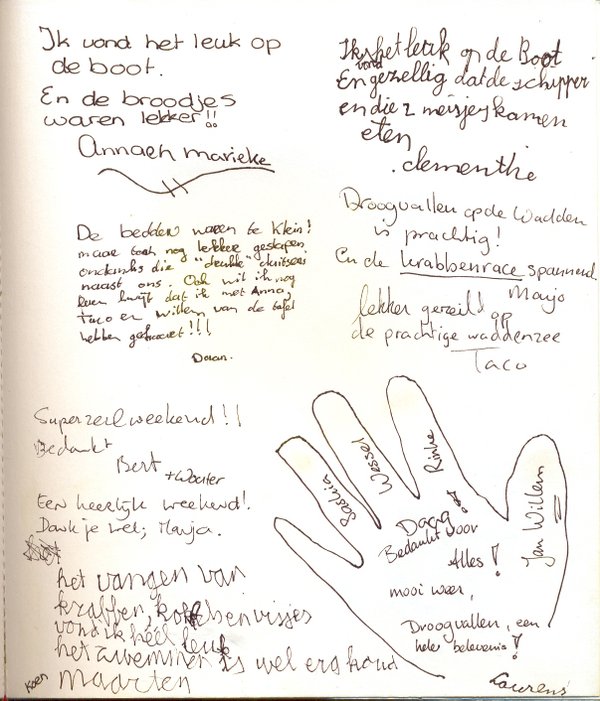 Ik vond het leuk op
de boot.
En de broodjes
waren lekker!!
Annaeh marieke
Ik vond het leuk op de Boot
En gezellig dat de schipper
en die 2 meisjes kamen
eten
.clementhe
De bedden waren te klein!
maar toch nog lekker geslapen
ondanks die "drukke" duitsers
naast ons. Ook wil ik nog
even kwijt dat ik met Anna,
Taco en willem van de tafel
hebben gedanset!!!
Daan.
Droogvallen op de Wadden
is prachtig!
En de krabbenrace spannend.
Marjo
lekker gezeild op
de prachtige waddenzee
Taco
Superzeilweekend!!
Bedankt
Bert
+ Wouter
Een heerlijk weekend!
Dank je wel, Marja.
het vangen van
krabben, en visjes
vond ik héél leuk
het zwemmen is wel erg koud
Koen
Maarten
Saskia
Wessel
Rinke
Jan Willem
Daag!
Bedankt voor
Alles!
mooi weer,
Droogvallen, een
hele belevenis!
Laurens